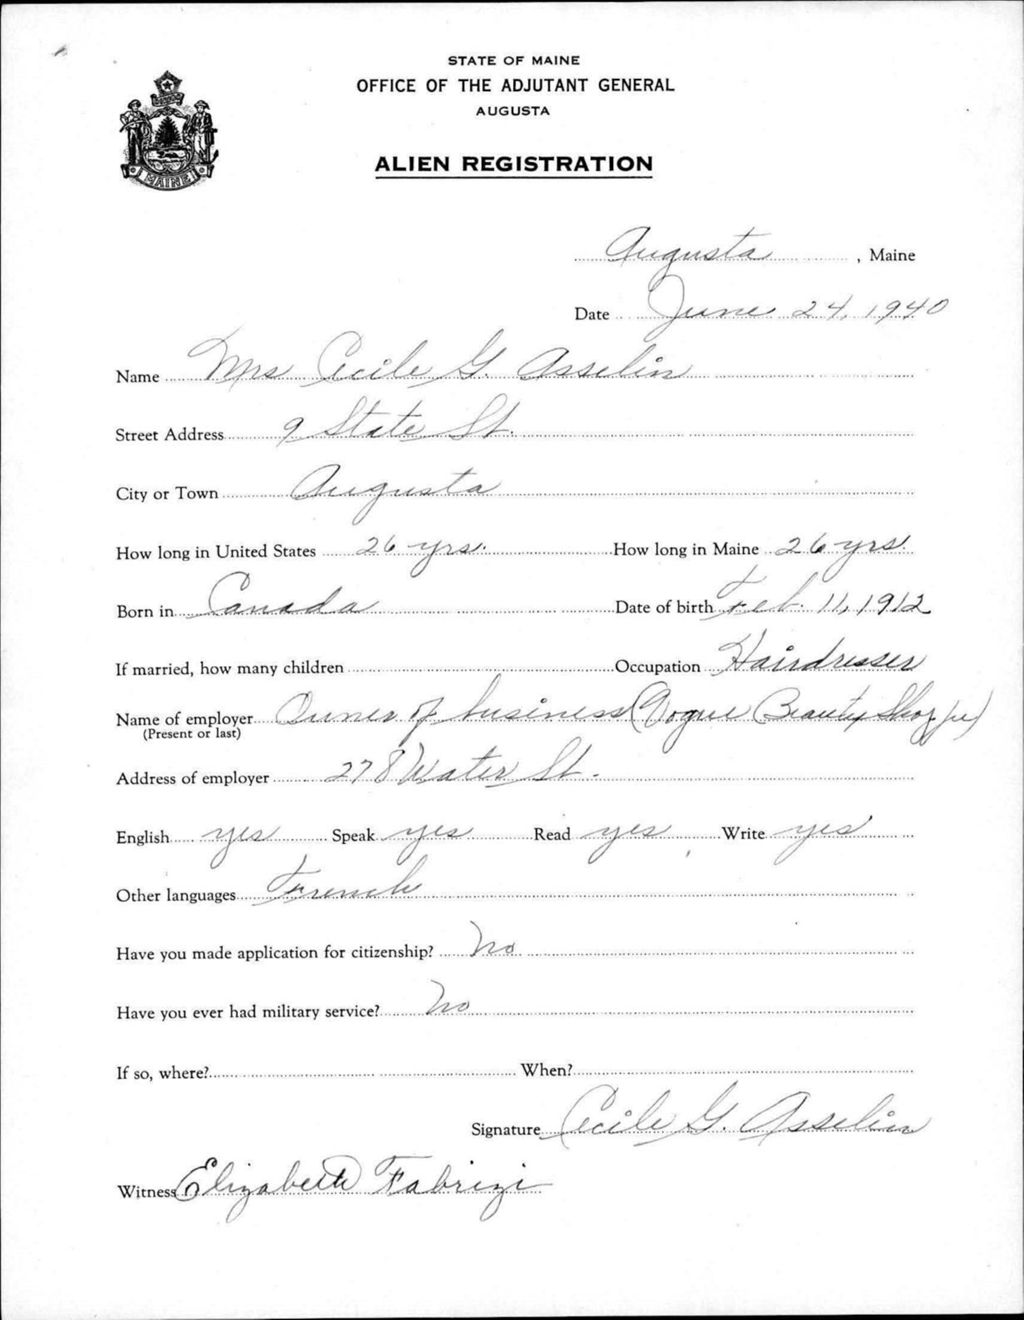 STATE OF MAINE
OFFICE OF THE ADJUTANT GENERAL
AUGUSTA
ALIEN REGISTRATION
MAINE
Augusta, Maine
Date June 24, 1940
Name Mrs Cecile G. Asselin
Street Address 9 State St.
City or Town Augusta
How long in United States 26 yrs. How long in Maine 26 yrs.
Born in Canada Date of birth Feb. 11, 1912
If married, how many children Occupation Hairdresser
Name of employer Owner of business (Vogue Beauty Shoppe)
(Present or last)
Address of employer 278 Water St.
English yes Speak yes Read yes Write yes
Other languages French
Have you made application for citizenship? No
Have you ever had military service? No
If so, where? When?
Signature Cecile G. Asselin
Witness Elizabeth Fabrizi